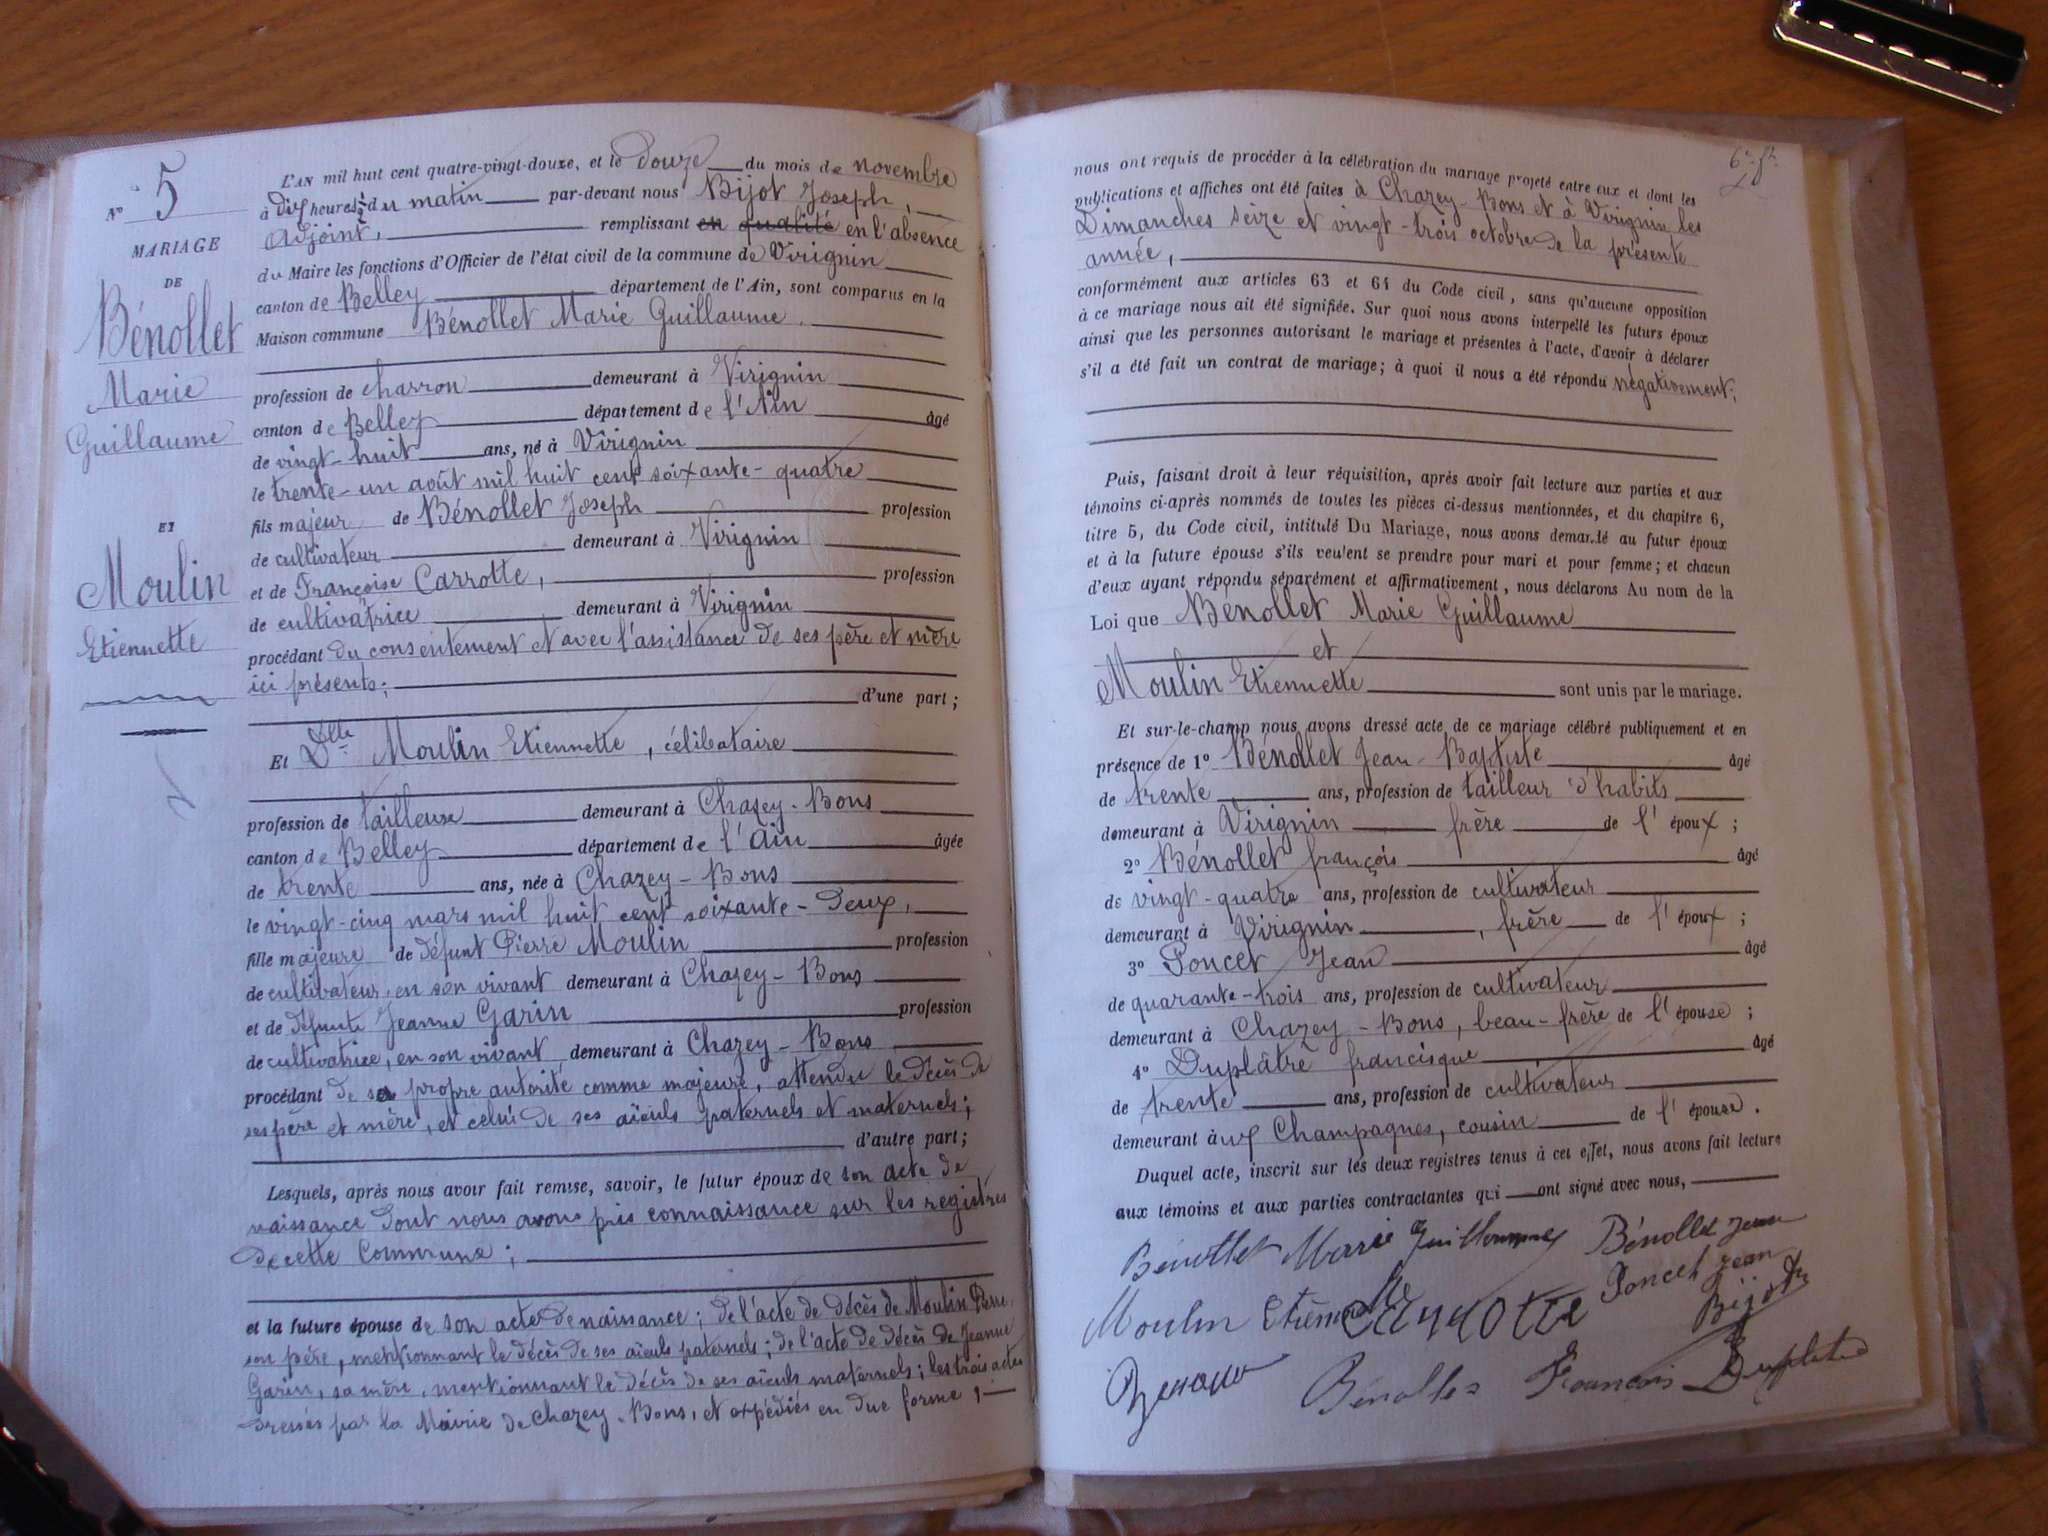 N° 5
MARIAGE
DE
Bénollet
Marie
Guillaume
ET
Moulin
Etiennette
L'AN mil huit cent quatre-vingt-douze, et le douze du mois de novembre
à dix heures ½ du matin par-devant nous Bijot Joseph,
adjoint, remplissant en qualité en l'absence
du Maire les fonctions d'Officier de l'état civil de la commune de Virignin
canton de Belley département de l'Ain, sont comparus en la
Maison commune Bénollet Marie Guillaume,
profession de charron demeurant à Virignin
canton de Belley département de l'Ain âgé
de vingt-huit ans, né à Virignin
le trente-un août mil huit cent soixante-quatre
fils majeur de Bénollet Joseph profession
de cultivateur demeurant à Virignin
et de Françoise Carrotte, profession
de cultivatrice demeurant à Virignin
procédant du consentement et avec l'assistance de ses père et mère
ici présents; d'une part;
Et Dlle Moulin Etiennette, célibataire
profession de tailleuse demeurant à Chazey-Bons
canton de Belley département de l'Ain âgée
de trente ans, née à Chazey-Bons
le vingt-cinq mars mil huit cent soixante-deux,
fille majeure de défunt Pierre Moulin profession
de cultivateur, en son vivant demeurant à Chazey-Bons
et de défunte Jeanne Garin profession
de cultivatrice, en son vivant demeurant à Chazey-Bons
procédant de sa propre autorité comme majeure, attendu le décès de
ses père et mère, et celui de ses aïeuls paternels et maternels;
d'autre part;
Lesquels, après nous avoir fait remise, savoir, le futur époux de son acte de
naissance dont nous avons pris connaissance sur les registres
de cette Commune;
et la future épouse de son acte de naissance; de l'acte de décès de Moulin Pierre,
son père, mentionnant le décès de ses aïeuls paternels; de l'acte de décès de Jeanne
Garin, sa mère, mentionnant le décès de ses aïeuls maternels; les trois actes
dressés par la Mairie de Chazey-Bons, et expédiés en due forme;
nous ont requis de procéder à la célébration du mariage projeté entre eux et dont les
publications et affiches ont été faites à Chazey-Bons et à Virignin les
Dimanches seize et vingt-trois octobre de la présente
année,
conformément aux articles 63 et 64 du Code civil, sans qu'aucune opposition
à ce mariage nous ait été signifiée. Sur quoi nous avons interpellé les futurs époux
ainsi que les personnes autorisant le mariage et présentes à l'acte, d'avoir à déclarer
s'il a été fait un contrat de mariage; à quoi il nous a été répondu négativement;
Puis, faisant droit à leur réquisition, après avoir fait lecture aux parties et aux
témoins ci-après nommés de toutes les pièces ci-dessus mentionnées, et du chapitre 6,
titre 5, du Code civil, intitulé Du Mariage, nous avons demandé au futur époux
et à la future épouse s'ils veulent se prendre pour mari et pour femme; et chacun
d'eux ayant répondu séparément et affirmativement, nous déclarons Au nom de la
Loi que Bénollet Marie Guillaume
et
Moulin Etiennette sont unis par le mariage.
Et sur-le-champ nous avons dressé acte de ce mariage célébré publiquement et en
présence de 1° Bénollet Jean-Baptiste âgé
de trente ans, profession de tailleur d'habits
demeurant à Virignin frère de l'époux;
2° Bénollet françois âgé
de vingt-quatre ans, profession de cultivateur
demeurant à Virignin, frère de l'époux;
3° Poncet Jean âgé
de quarante-trois ans, profession de cultivateur
demeurant à Chazey-Bons, beau-frère de l'épouse;
4° Duplâtre francisque âgé
de trente ans, profession de cultivateur
demeurant aux Champagnes, cousin de l'épouse.
Duquel acte, inscrit sur les deux registres tenus à cet effet, nous avons fait lecture
aux témoins et aux parties contractantes qui ont signé avec nous,
Bénollet Marie Guillaume Bénollet Jean
Moulin Etiennette Carrotte Poncet Jean
Bijot
Bénollet François Duplatre